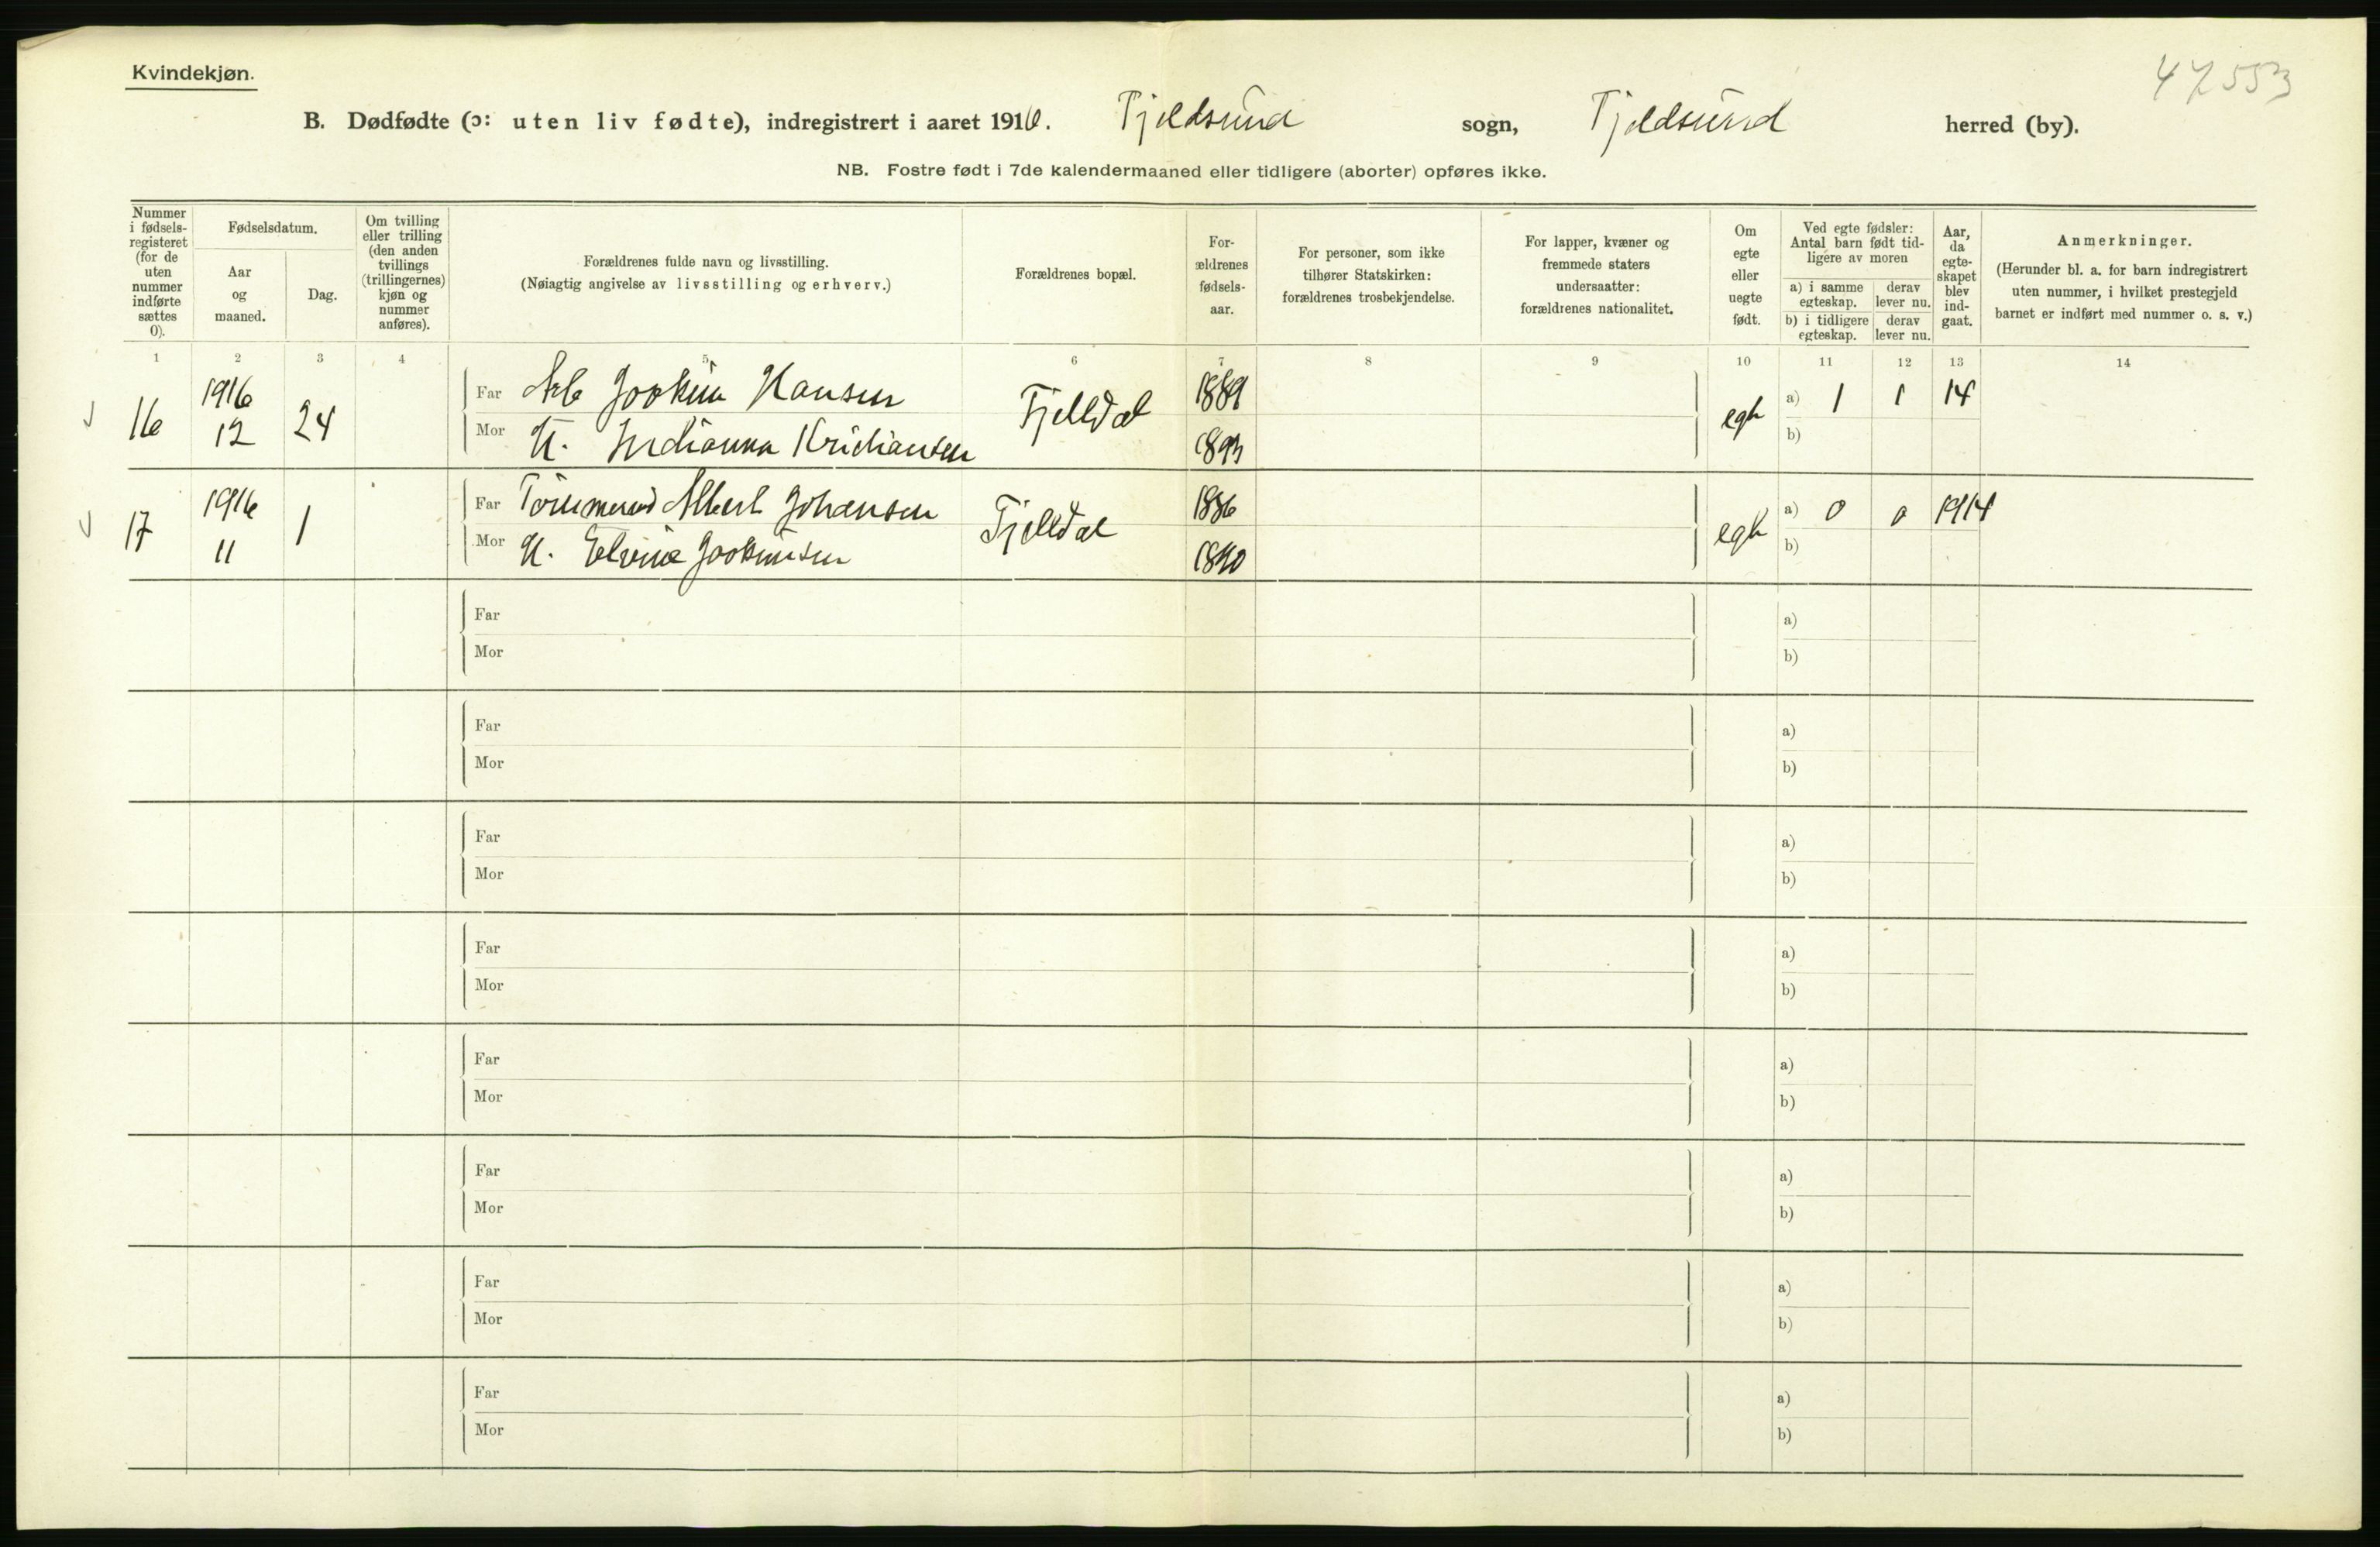 Kvindekjøn.
47553
B. Dødfødte (ɔ: uten liv fødte), indregistrert i aaret 1916. Tjeldsund sogn, Tjeldsund herred (by).
NB. Fostre født i 7de kalendermaaned eller tidligere (aborter) opføres ikke.
Nummer
i fødsels-
registeret
(for de
uten
nummer
indførte
sættes
0).
Fødselsdatum.
Aar
og
maaned.
Dag.
Om tvilling
eller trilling
(den anden
tvillings
(trillingernes)
kjøn og
nummer
anføres).
Forældrenes fulde navn og livsstilling.
(Nøiagtig angivelse av livsstilling og erhverv.)
Forældrenes bopæl.
For-
ældrenes
fødsels-
aar.
For personer, som ikke
tilhører Statskirken:
forældrenes trosbekjendelse.
For lapper, kvæner og
fremmede staters
undersaatter:
forældrenes nationalitet.
Om
egte
eller
uegte
født.
Ved egte fødsler:
Antal barn født tid-
ligere av moren
a) i samme
egteskap.
derav
lever nu.
b) i tidligere
egteskap.
derav
lever nu.
Aar,
da
egte-
skapet
blev
ind-
gaat.
Anmerkninger.
(Herunder bl. a. for barn indregistrert
uten nummer, i hvilket prestegjeld
barnet er indført med nummer o. s. v.)
1 2 3 4 5 6 7 8 9 10 11 12 13 14
16 1916 12 24 Far Arb Joakim Hansen Fjelldal 1889 egte a) 1 1 14
Mor H. Kristiansen 1893 b)
17 1916 11 1 Far Albert Johansen Fjelldal 1886 egte a) 0 0 1914
Mor H. Elvine Joakimsen 1890 b)
Far a)
Mor b)
Far a)
Mor b)
Far a)
Mor b)
Far a)
Mor b)
Far a)
Mor b)
Far a)
Mor b)
Far a)
Mor b)
Far a)
Mor b)